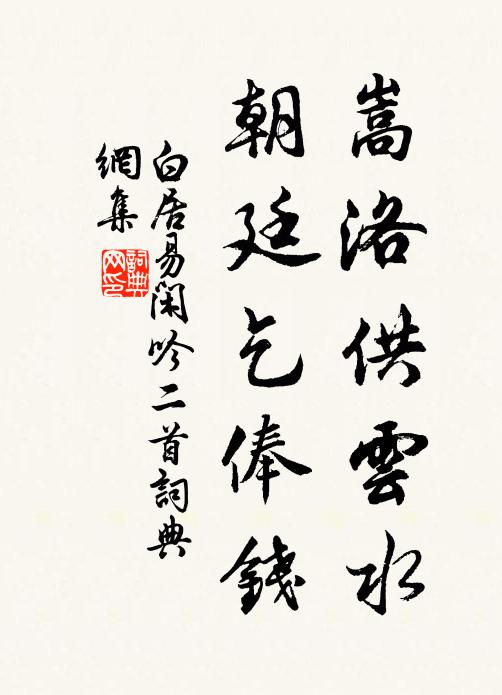 嵩洛供雲水
朝廷乞俸錢
白居易閑吟二首詞典
網集
詞典
网印